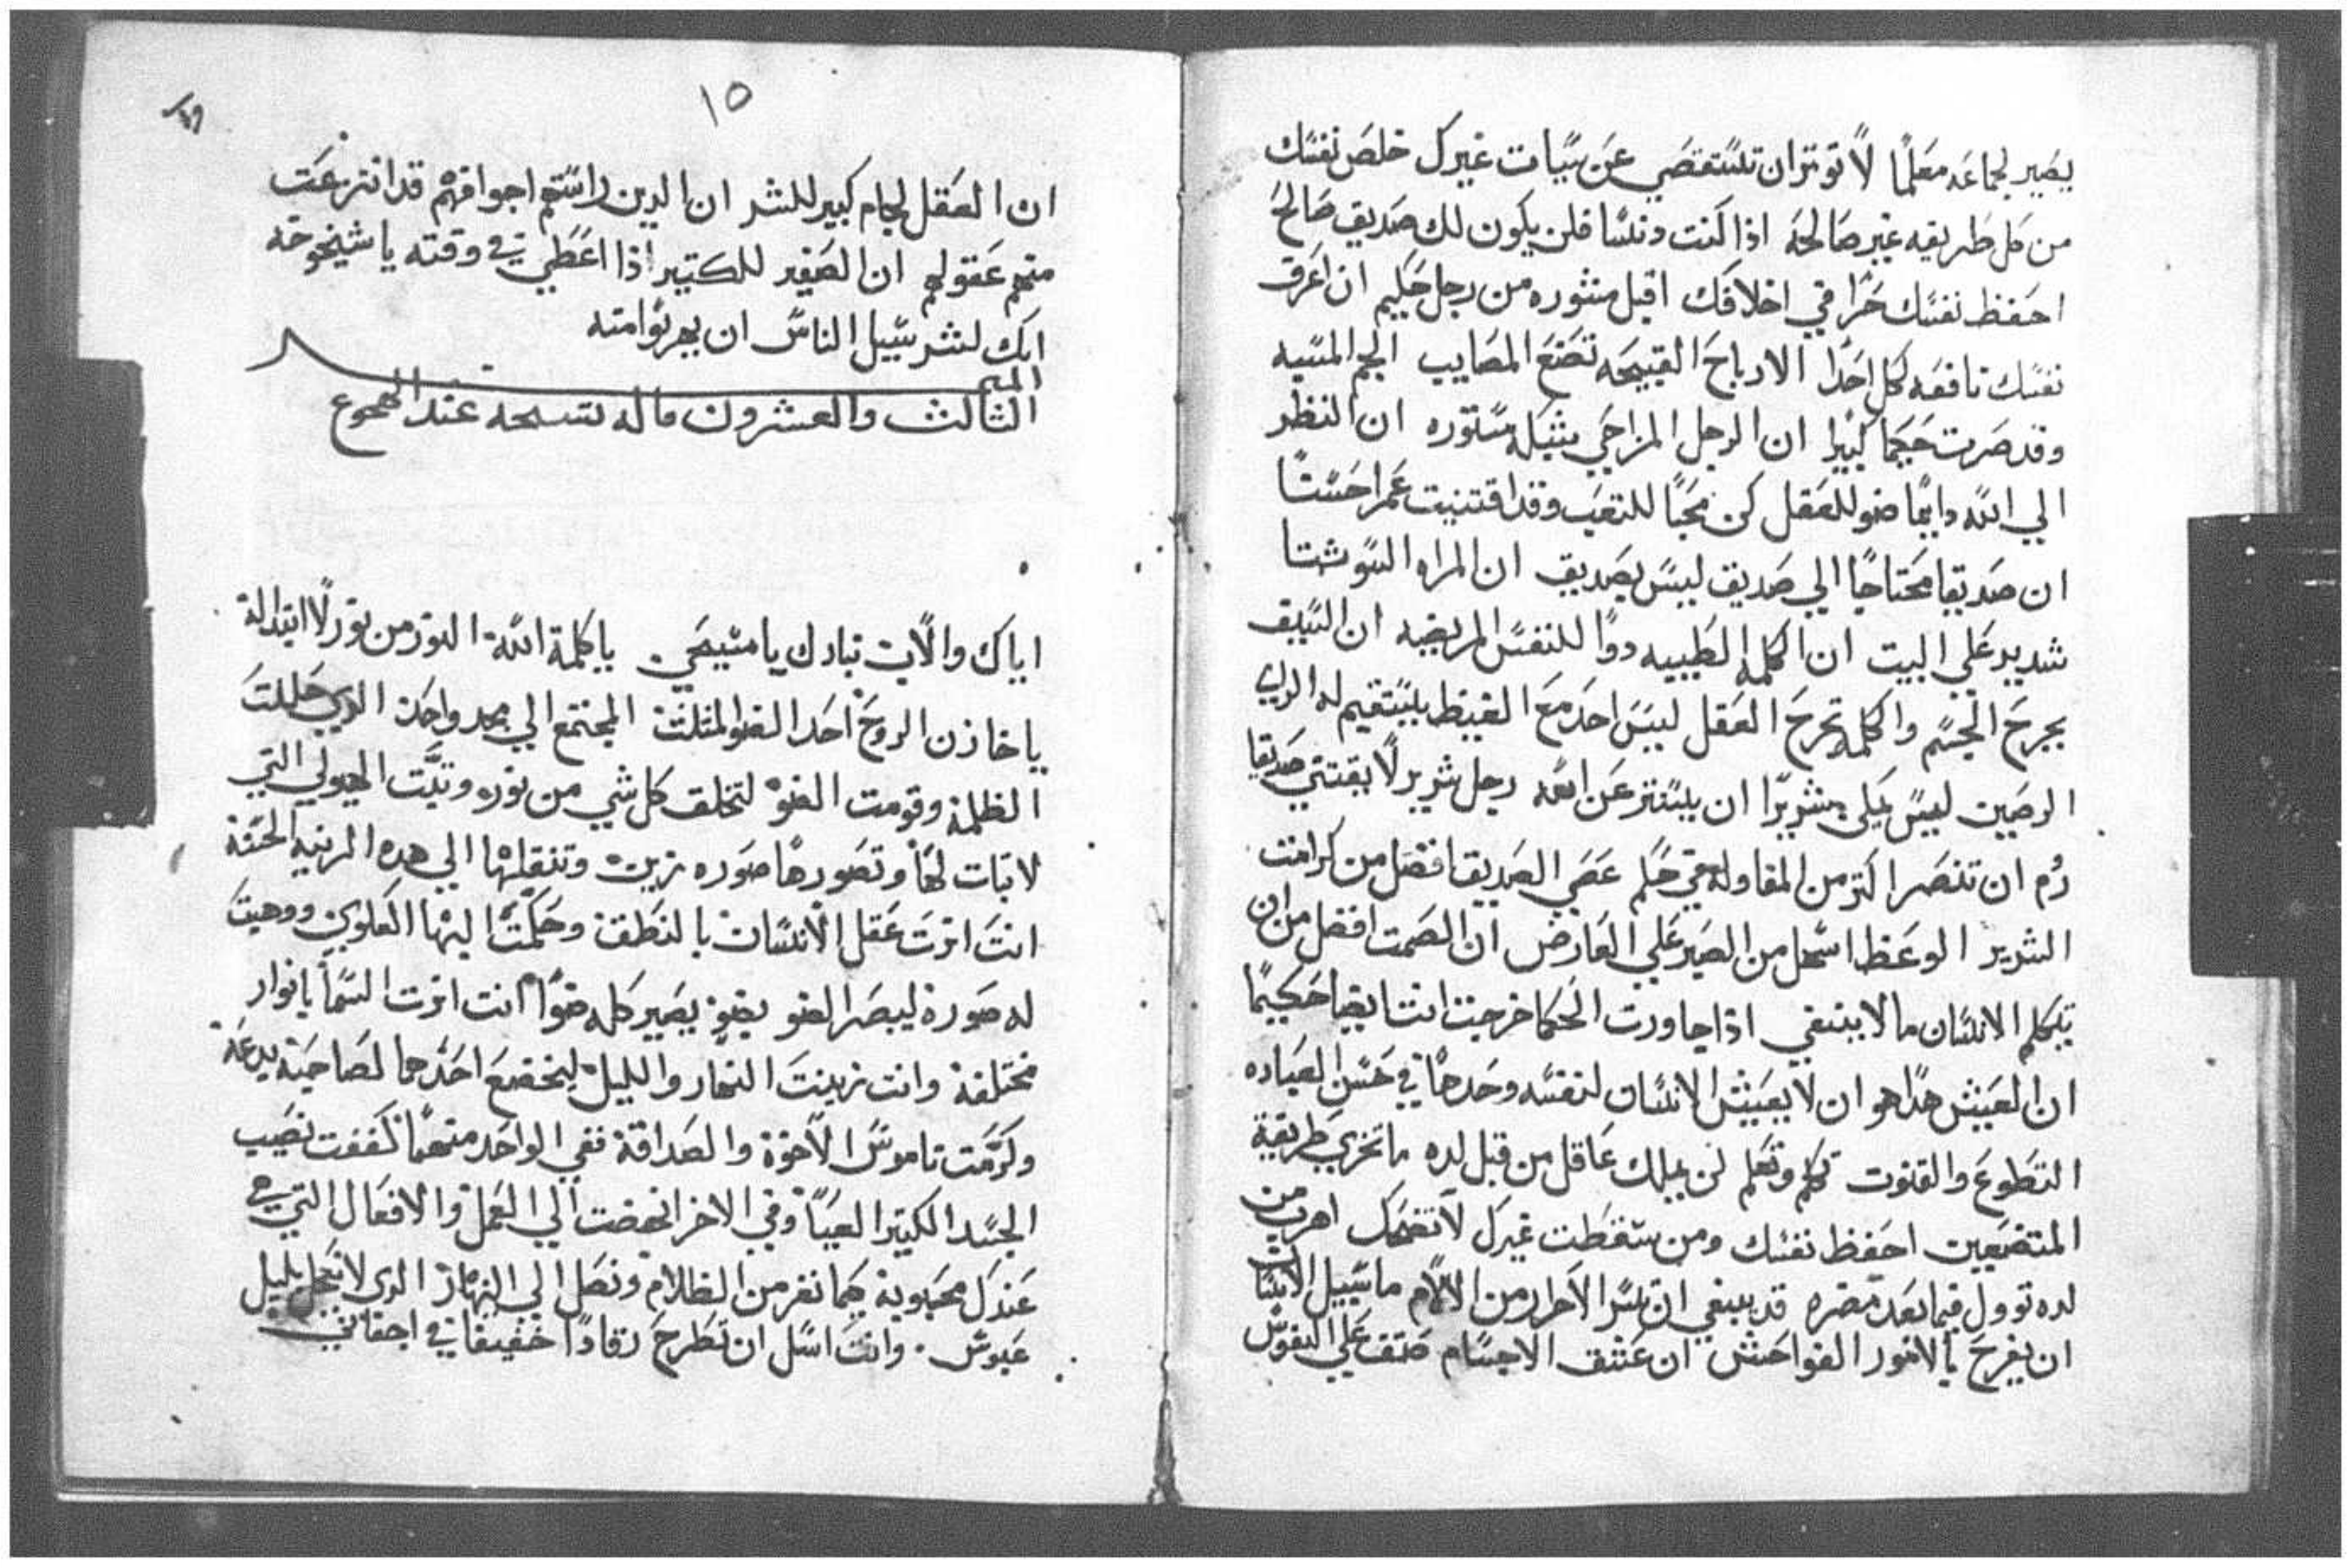 يصير لجماعه معلمًا لا توثر ان تستقصي عن سيات غيرك خلص نفسك
من كل طريقه غير صالحه اذا كنت دنسًا فلن يكون لك صديق صالح
احفظ نفسك حرًا في اخلاقك اقبل مشوره من رجل حكيم ان اعرف
نفسك نافعه كل احدًا الارباح القبيحه تضع المصايب الجم المسيه
وقد صرت حجما كبيرا ان الرجل المزاحي بثبله ستوره ان النظر
الي الله دايمًا ضو للعقل كن محبًا للتعب وقد اقتنيت عمرا حسنًا
ان صديقا محتاجًا الي صديق ليس بصديق ان المراه السو شتا
شديد علي البيت ان الكلمه الطبيبه دوًا للنفس المريضه ان السيف
يجرح الجسم والكلمه تجرح العقل ليس احد مع الغيظ يستقيم له الراي
الرصين ليس علي شريرًا ان يستتر عن الله رجل شرير لا يقتني صديقا
رُم ان تنصر اكتر من المقاوله في حلم عصي الصديق افضل من كرامت
الشرير الوعظ اسهل من الصبر علي العارض ان الصمت افضل من ان
يتكلم الانسان ما لا ينبغي اذا جاورت الحكما خرجت انت ايضا حكيمًا
ان العيش هدا هو ان لا يعيش الانسان لنفسه وحدها في حسن العباده
التطوع والقنوت تكلم وتعلم لن يملك عاقل من قبل لده ما تجري طريقة
المتضعين احفظ نفسك ومن سقطت غيرك لا تضحك اهرب من
لده توول فيما بعد مضره قد ينبغي ان يسر الاحرار من الالام ما سبيل الانسان
ان يفرح بالامور الفواحش ان عشق الاجسام صنف علي النفوس
١٥
ان العقل لجام كبير للشر ان الدين راستهم اجوافهم قد انتزعت
منهم عقولهم ان الصغير للكتير اذا اعطي في وقته يا شيخوخه
انك لشر سبيل الناس ان يهربوا منه
الميمر
الثالث والعشرون ما له لتسبحه عند الهجوع
اياك والان تبارك يا مسيحي يا كلمة الله النور من نور لا ابتدا له
يا خازن الروح احد الضو المتلت المجتمع الي مجد واحد الدي حللت
الظلمة وقومت الضو لتخلق كل شي من نوره وتبت الهيولي التي
لا تبات لها وتصورها صوره زين وتنقلها الي هده المرتبه الحسنة
انت انرت عقل الانسان بالنطق وحكمت البها العلوي ووهبت
له صورة ليبصر الضو بضو يصير كله ضوًا انت انرت السما بانوار
مختلفة وانت زينت النهار والليل ليخضع احدهما لصاحبة بدعة
وكرمت ناموس الاخوة والصداقة ففي الواحد منهما كففت نصب
الجسد الكتير العيا وفي الاخر انهضت الي العمل والافعال التي هي
عندك محبوبة كما نفر من الظلام ونصل الي النهار الدي لا ينحل بليل
عبوس . وانت اسل ان تطرح رقادًا خفيفا في اجفاني